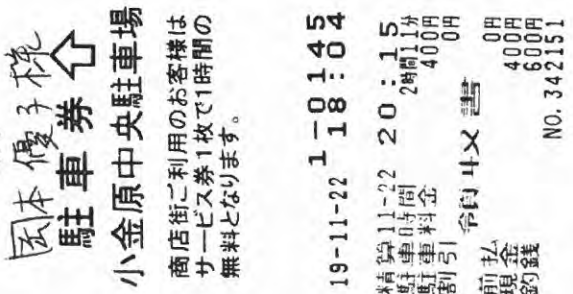 岡本優子様
駐車券
小金原中央駐車場
商店街ご利用のお客様は
サービス券1枚で1時間の
無料となります。
1-0145
19-11-22 18:04
精算11-22 20:15
駐車時間 2時間11分
駐車料金 400円
割引 0円
領収書
前払 0円
現金 400円
釣銭 600円
NO.342151